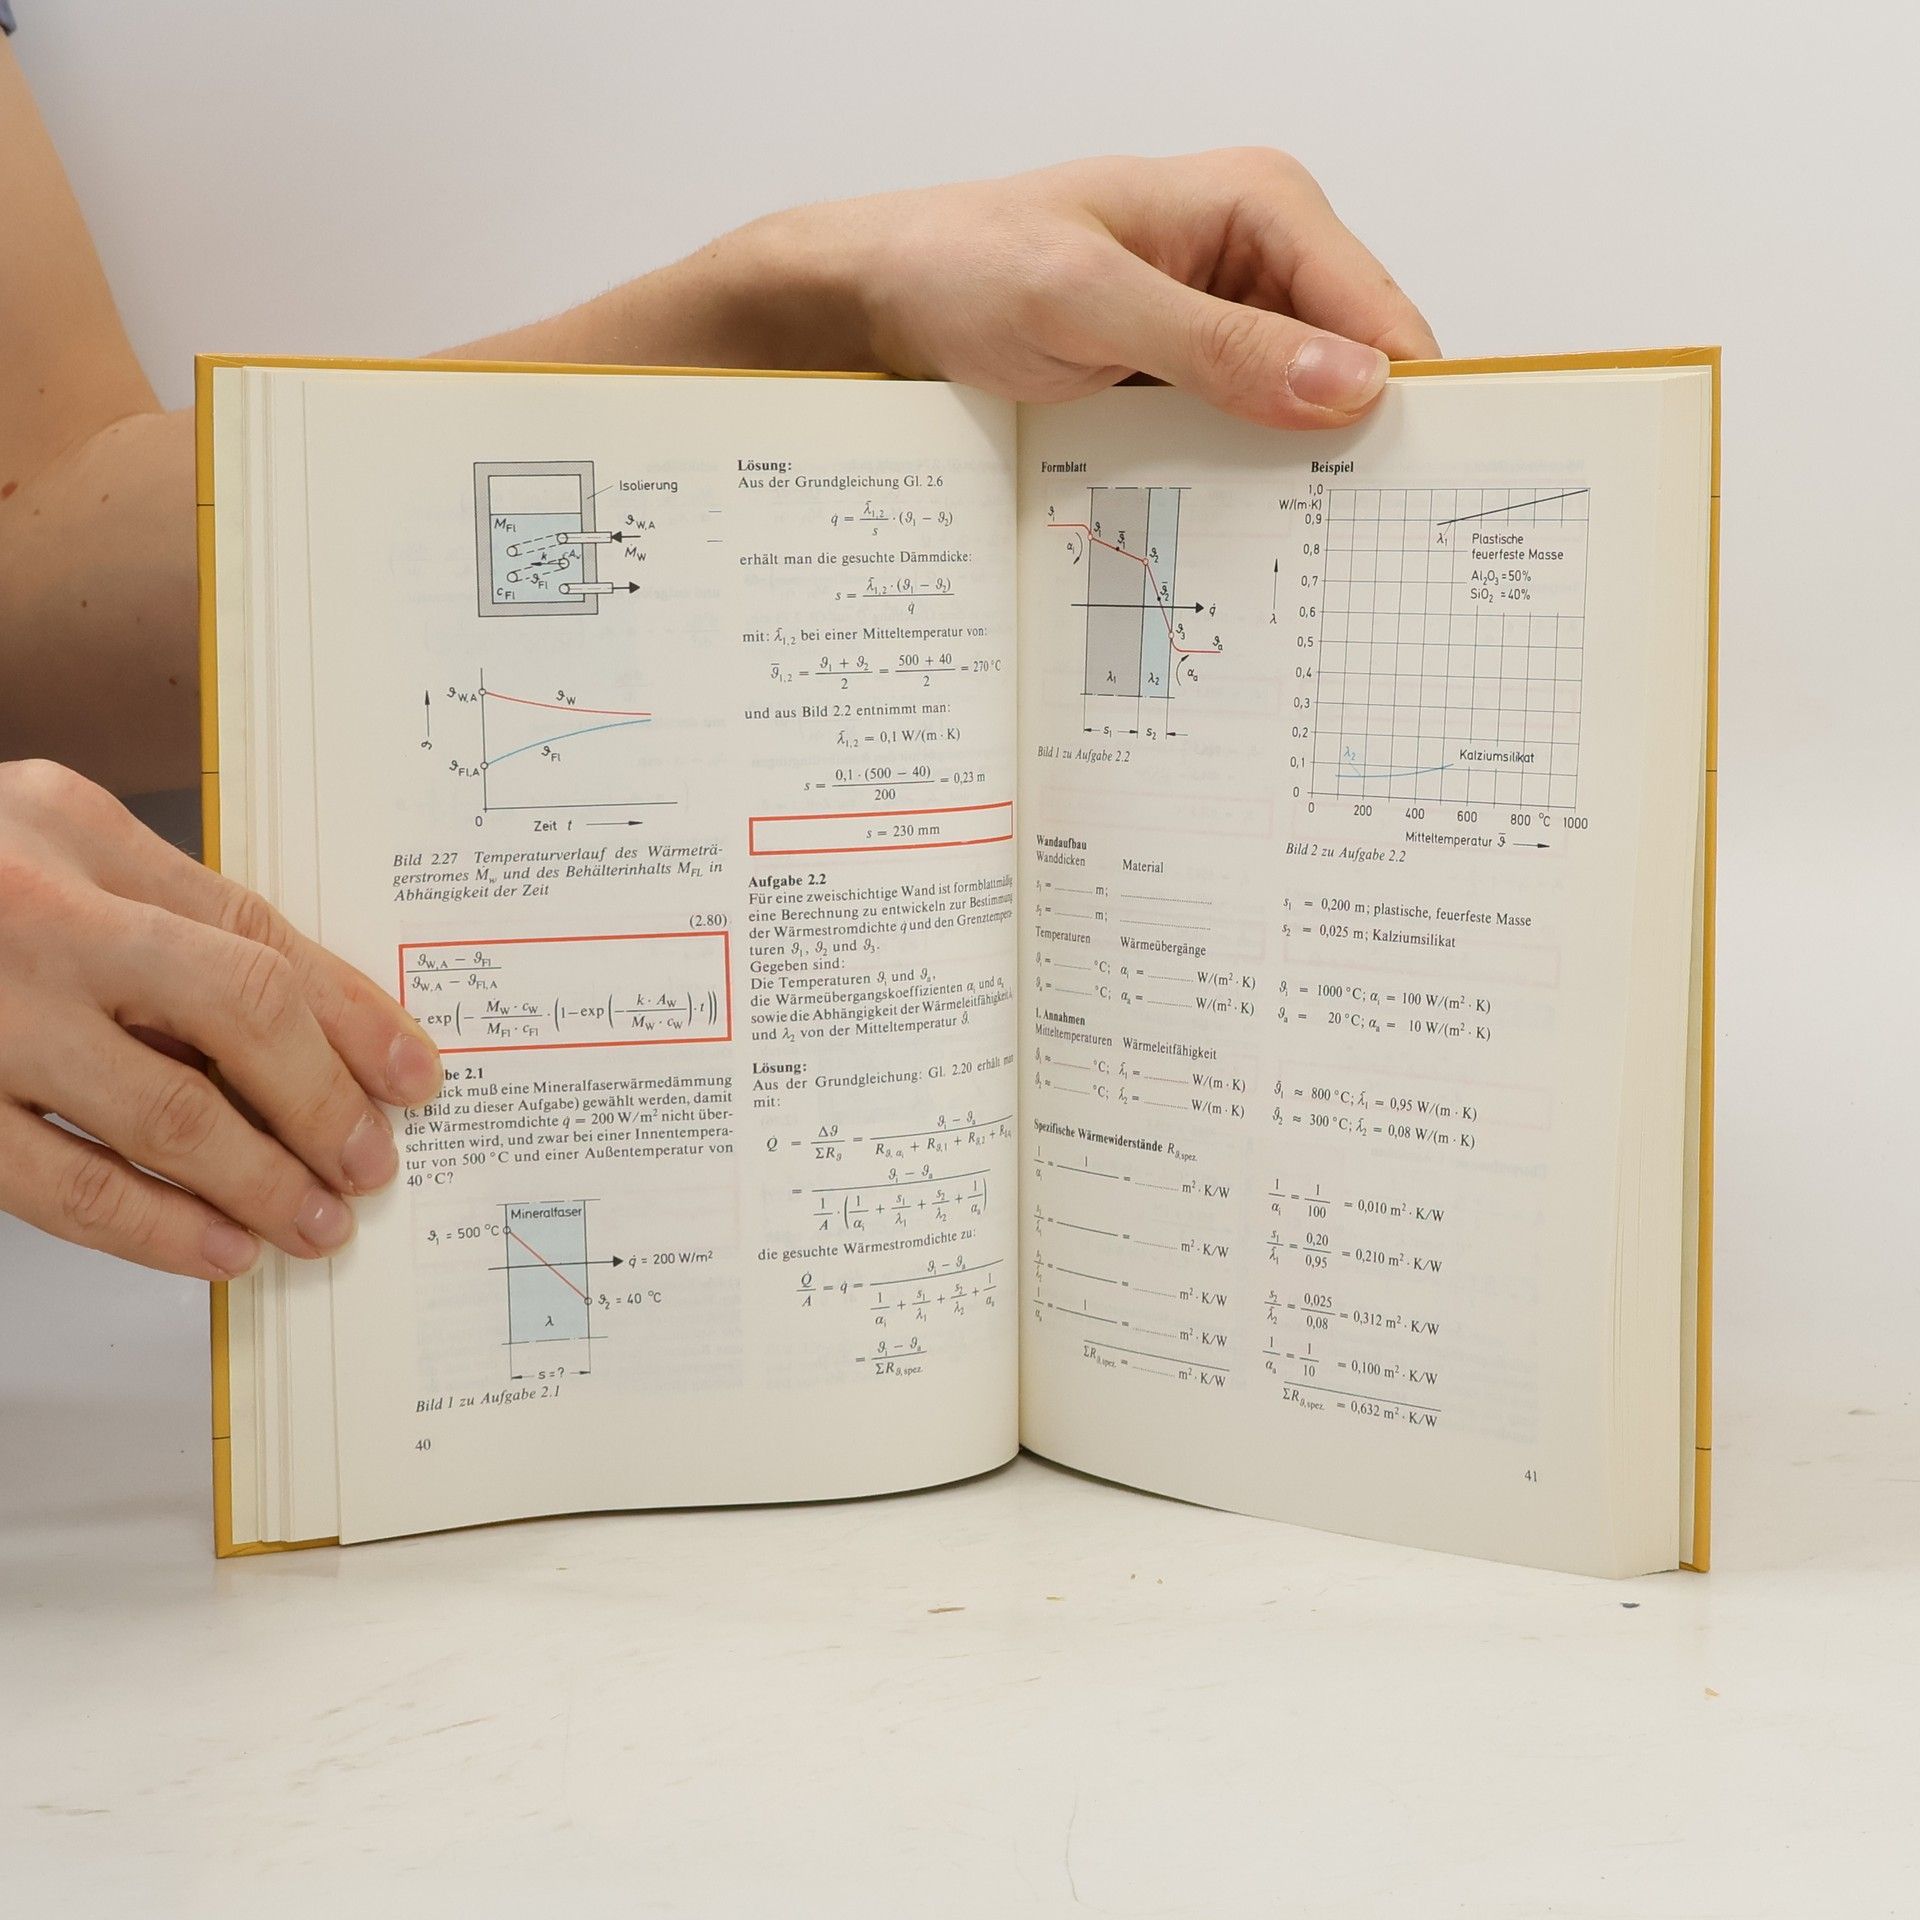 Isolierung
M_Fl
ϑ_W,A
Ṁ_W
k
ϑ_Fl
c_Fl
ϑ_W,A
ϑ_W
ϑ
ϑ_Fl
ϑ_Fl,A
0
Zeit t
Bild 2.27 Temperaturverlauf des Wärmeträ-
gerstromes Ṁ_w und des Behälterinhalts M_FL in
Abhängigkeit der Zeit
(2.80)
(ϑ_W,A − ϑ_Fl) / (ϑ_W,A − ϑ_Fl,A)
= exp (− (Ṁ_W · c_W) / (M_Fl · c_Fl) · (1−exp (− (k · A_W) / (Ṁ_W · c_W)) · t))
be 2.1
ick muß eine Mineralfaserwärmedämmung
(s. Bild zu dieser Aufgabe) gewählt werden, damit
die Wärmestromdichte q̇ = 200 W/m² nicht über-
schritten wird, und zwar bei einer Innentempera-
tur von 500 °C und einer Außentemperatur von
40 °C?
Mineralfaser
ϑ₁ = 500 °C
q̇ = 200 W/m²
ϑ₂ = 40 °C
λ
s = ?
Bild 1 zu Aufgabe 2.1
40
Lösung:
Aus der Grundgleichung Gl. 2.6
q̇ = λ̄₁,₂ / s · (ϑ₁ − ϑ₂)
erhält man die gesuchte Dämmdicke:
s = λ̄₁,₂ · (ϑ₁ − ϑ₂) / q̇
mit: λ̄₁,₂ bei einer Mitteltemperatur von:
ϑ̄₁,₂ = (ϑ₁ + ϑ₂) / 2 = (500 + 40) / 2 = 270 °C
und aus Bild 2.2 entnimmt man:
λ̄₁,₂ = 0,1 W/(m · K)
s = 0,1 · (500 − 40) / 200 = 0,23 m
s = 230 mm
Aufgabe 2.2
Für eine zweischichtige Wand ist formblattmäßig
eine Berechnung zu entwickeln zur Bestimmung
der Wärmestromdichte q̇ und den Grenztempera-
turen ϑ₁, ϑ₂ und ϑ₃.
Gegeben sind:
Die Temperaturen ϑ_i und ϑ_a,
die Wärmeübergangskoeffizienten α_i und α_a
sowie die Abhängigkeit der Wärmeleitfähigkeit λ₁
und λ₂ von der Mitteltemperatur ϑ̄.
Lösung:
Aus der Grundgleichung: Gl. 2.20 erhält man
mit:
Q̇ = Δϑ / ΣR_ϑ = (ϑ_i − ϑ_a) / (R_ϑ,αi + R_ϑ,1 + R_ϑ,2 + R_ϑ,αa)
= (ϑ_i − ϑ_a) / (1/A · (1/α_i + s₁/λ₁ + s₂/λ₂ + 1/α_a))
die gesuchte Wärmestromdichte zu:
Q̇/A = q̇ = (ϑ_i − ϑ_a) / (1/α_i + s₁/λ₁ + s₂/λ₂ + 1/α_a)
= (ϑ_i − ϑ_a) / ΣR_ϑ,spez.
Formblatt
ϑ_i
ϑ₁
ϑ̄₁
α_i
ϑ₂
ϑ̄₂
q̇
ϑ₃
ϑ_a
λ₁
λ₂
α_a
s₁
s₂
Bild 1 zu Aufgabe 2.2
Wandaufbau
Wanddicken Material
s₁ = ........... m; ...........................
s₂ = ........... m; ...........................
Temperaturen Wärmeübergänge
ϑ_i = ........... °C; α_i = ........... W/(m² · K)
ϑ_a = ........... °C; α_a = ........... W/(m² · K)
1. Annahmen
Mitteltemperaturen Wärmeleitfähigkeit
ϑ̄₁ ≈ ........... °C; λ̄₁ = ........... W/(m · K)
ϑ̄₂ ≈ ........... °C; λ̄₂ = ........... W/(m · K)
Spezifische Wärmewiderstände R_ϑ,spez.
1/α_i = 1/ = ........... m² · K/W
s₁/λ̄₁ = = ........... m² · K/W
s₂/λ̄₂ = = ........... m² · K/W
1/α_a = 1/ = ........... m² · K/W
ΣR_ϑ,spez. = ........... m² · K/W
Beispiel
1,0
W/(m·K)
0,9
0,8
0,7
0,6
λ
0,5
0,4
0,3
0,2
0,1
0
λ₁
Plastische
feuerfeste Masse
Al₂O₃ = 50%
SiO₂ = 40%
λ₂
Kalziumsilikat
0 200 400 600 800 °C 1000
Mitteltemperatur ϑ̄
Bild 2 zu Aufgabe 2.2
s₁ = 0,200 m; plastische, feuerfeste Masse
s₂ = 0,025 m; Kalziumsilikat
ϑ_i = 1000 °C; α_i = 100 W/(m² · K)
ϑ_a = 20 °C; α_a = 10 W/(m² · K)
ϑ̄₁ ≈ 800 °C; λ̄₁ = 0,95 W/(m · K)
ϑ̄₂ ≈ 300 °C; λ̄₂ = 0,08 W/(m · K)
1/α_i = 1/100 = 0,010 m² · K/W
s₁/λ̄₁ = 0,20/0,95 = 0,210 m² · K/W
s₂/λ̄₂ = 0,025/0,08 = 0,312 m² · K/W
1/α_a = 1/10 = 0,100 m² · K/W
ΣR_ϑ,spez. = 0,632 m² · K/W
41